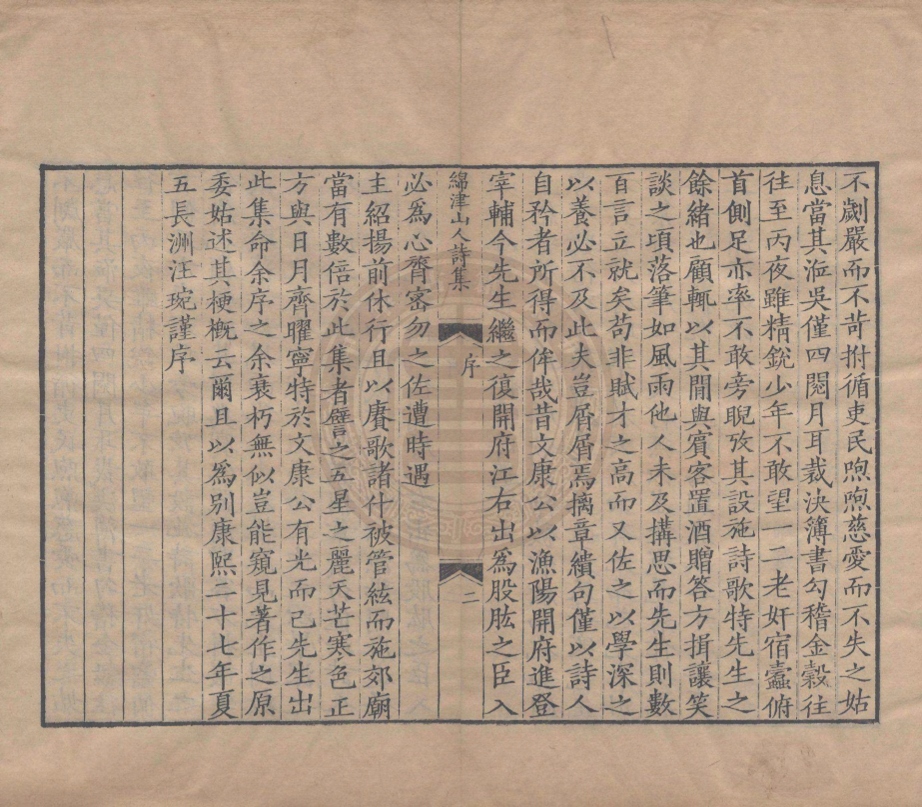 不劌嚴而不苛拊循吏民喣喣慈愛而不失之姑
息當其涖吳僅四閱月耳裁決簿書勾稽金穀往
往至丙夜雖精銳少年不敢望一二老奸宿蠹俯
首側足亦率不敢旁睨攷其設施詩歌特先生之
餘緒也顧輒以其閒與賓客置酒贈答方揖讓笑
談之頃落筆如風雨他人未及搆思而先生則數
百言立就矣苟非賦才之高而又佐之以學深之
以養必不及此夫豈屑屑焉摛章繢句僅以詩人
自矜者所得而侔哉昔文康公以漁陽開府進登
宰輔今先生繼之復開府江右出爲股肱之臣入
綿津山人詩集 序 二
必爲心膂密勿之佐遭時遇
主紹揚前休行且以賡歌諸什被管絃而施郊廟
當有數倍於此集者譬之五星之麗天芒寒色正
方與日月齊曜寧特於文康公有光而已先生出
此集命余序之余衰朽無似豈能窺見著作之原
委姑述其梗概云爾且以爲別康熙二十七年夏
五長洲汪琬謹序